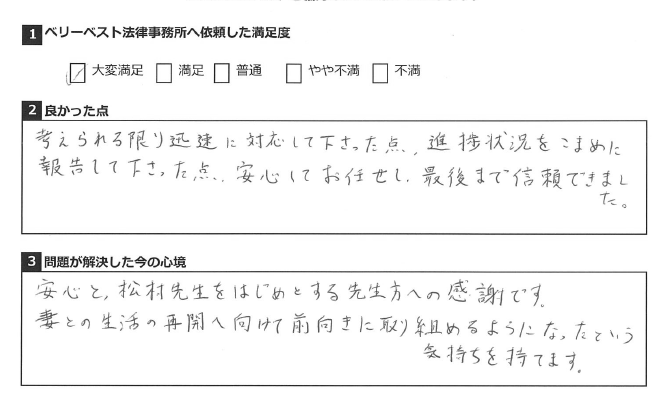 1 ベリーベスト法律事務所へ依頼した満足度
大変満足 満足 普通 やや不満 不満
2 良かった点
考えられる限り迅速に対応して下さった点、進捗状況をこまめに
報告して下さった点、安心してお任せし、最後まで信頼できまし
た。
3 問題が解決した今の心境
安心と、松村先生をはじめとする先生方への感謝です。
妻との生活の再開へ向けて前向きに取り組めるようになったという
気持ちを持てます。